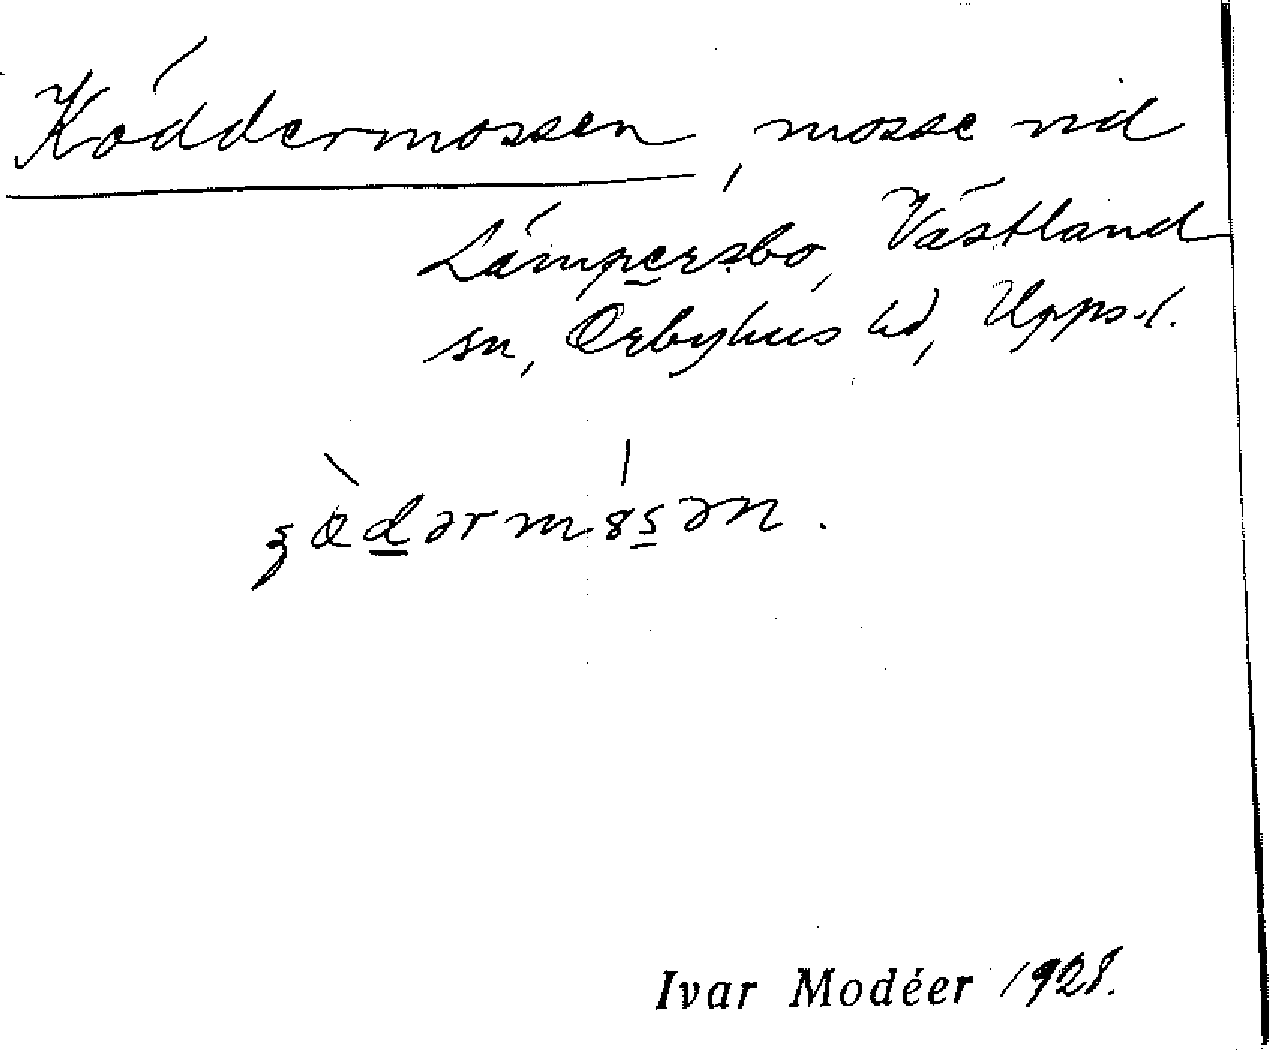 Köddermossen, mosse vid
Lämpersbo, Västland
sn, Örbyhus hd, Upps. l.
Ivar Modéer 1928.